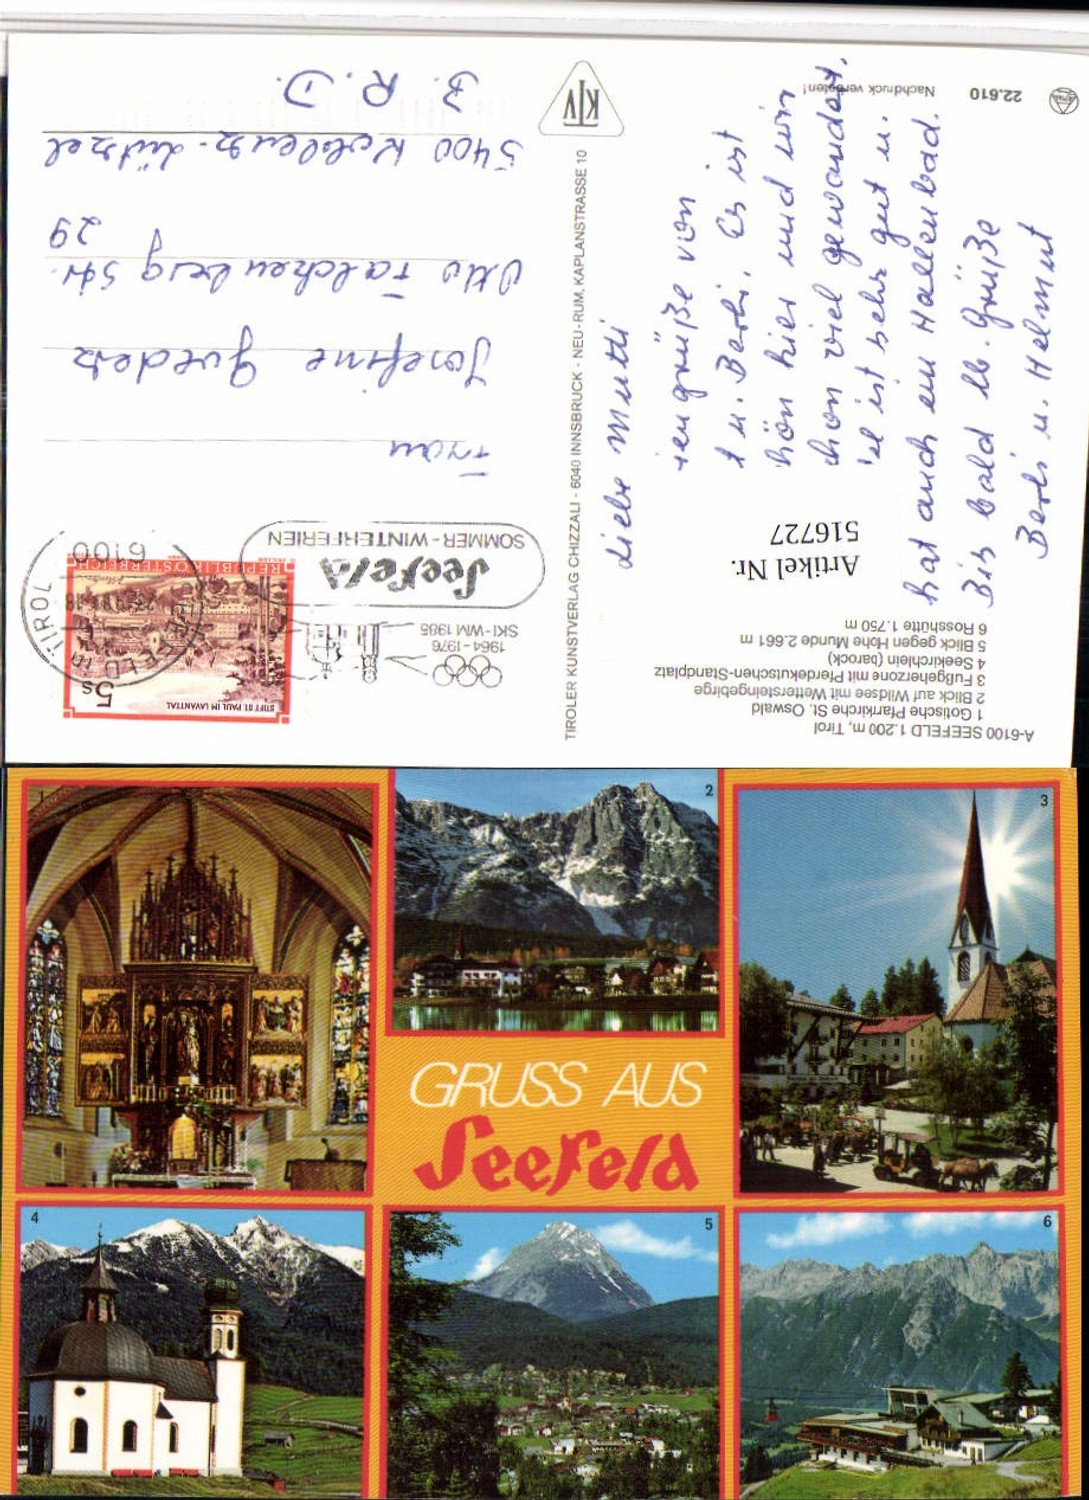 A-6100 SEEFELD 1.200 m, Tirol
1 Gotische Pfarrkirche St. Oswald
2 Blick auf Wildsee mit Wettersteingebirge
3 Fußgeherzone mit Pferdekutschen-Standplatz
4 Seekirchlein (barock)
5 Blick gegen Hohe Munde 2.661 m
6 Rosshütte 1.750 m
Artikel Nr.
516727
Liebe Mutti
grüße von
u. Berti. Es ist
hier und wir
viel gewandert.
ist sehr gut u.
hat auch ein Hallenbad.
Bis bald lb. Grüße
Berti u. Helmut
22.610 Nachdruck verboten!
TIROLER KUNSTVERLAG CHIZZALI - 6040 INNSBRUCK - NEU-RUM, KAPLANSTRASSE 10
KTV
STIFT ST. PAUL IM LAVANTTAL
5s
REPUBLIK ÖSTERREICH
6100
SEEFELD in TIROL
1964-1976
SKI-WM 1985
Seefeld
SOMMER-WINTERFERIEN
Frau
Josefine
Otto Falckenberg Str.
29
5400 Koblenz-Lützel
B. R. D.
1
2
3
GRUSS AUS
Seefeld
4
5
6